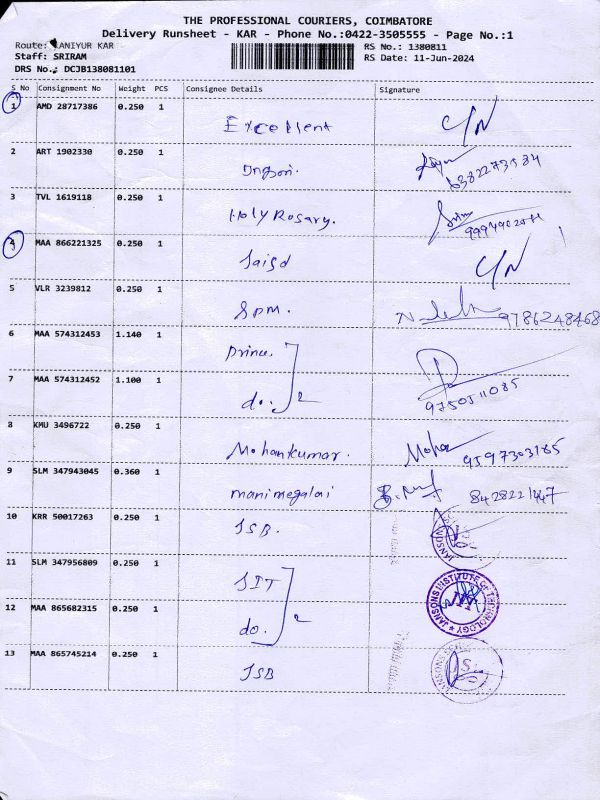 THE PROFESSIONAL COURIERS, COIMBATORE
Delivery Runsheet - KAR - Phone No.:0422-3505555 - Page No.:1
Route: KANIYUR KAR
RS No.: 1380811
Staff: SRIRAM
RS Date: 11-Jun-2024
DRS No.: DCJB138081101
S No Consignment No Weight PCS Consignee Details Signature
1 AMD 28717386 0.250 1 Excellent C/N
2 ART 1902330 0.250 1 6382273584
3 TVL 1619118 0.250 1 Holy Rosary.
4 MAA 866221325 0.250 1 C/N
5 VLR 3239812 0.250 1 SPM. 9786248468
6 MAA 574312453 1.140 1 Prince.
7 MAA 574312452 1.100 1 do. 2 9750511085
8 KMU 3496722 0.250 1 Mohankumar. Mohan 9597303185
9 SLM 347943045 0.360 1 manimegalai 8428221447
10 KRR 50017263 0.250 1 JSB.
11 SLM 347956809 0.250 1 JIT JANSONS INSTITUTE OF TECHNOLOGY
12 MAA 865682315 0.250 1 do. 2
13 MAA 865745214 0.250 1 JSB